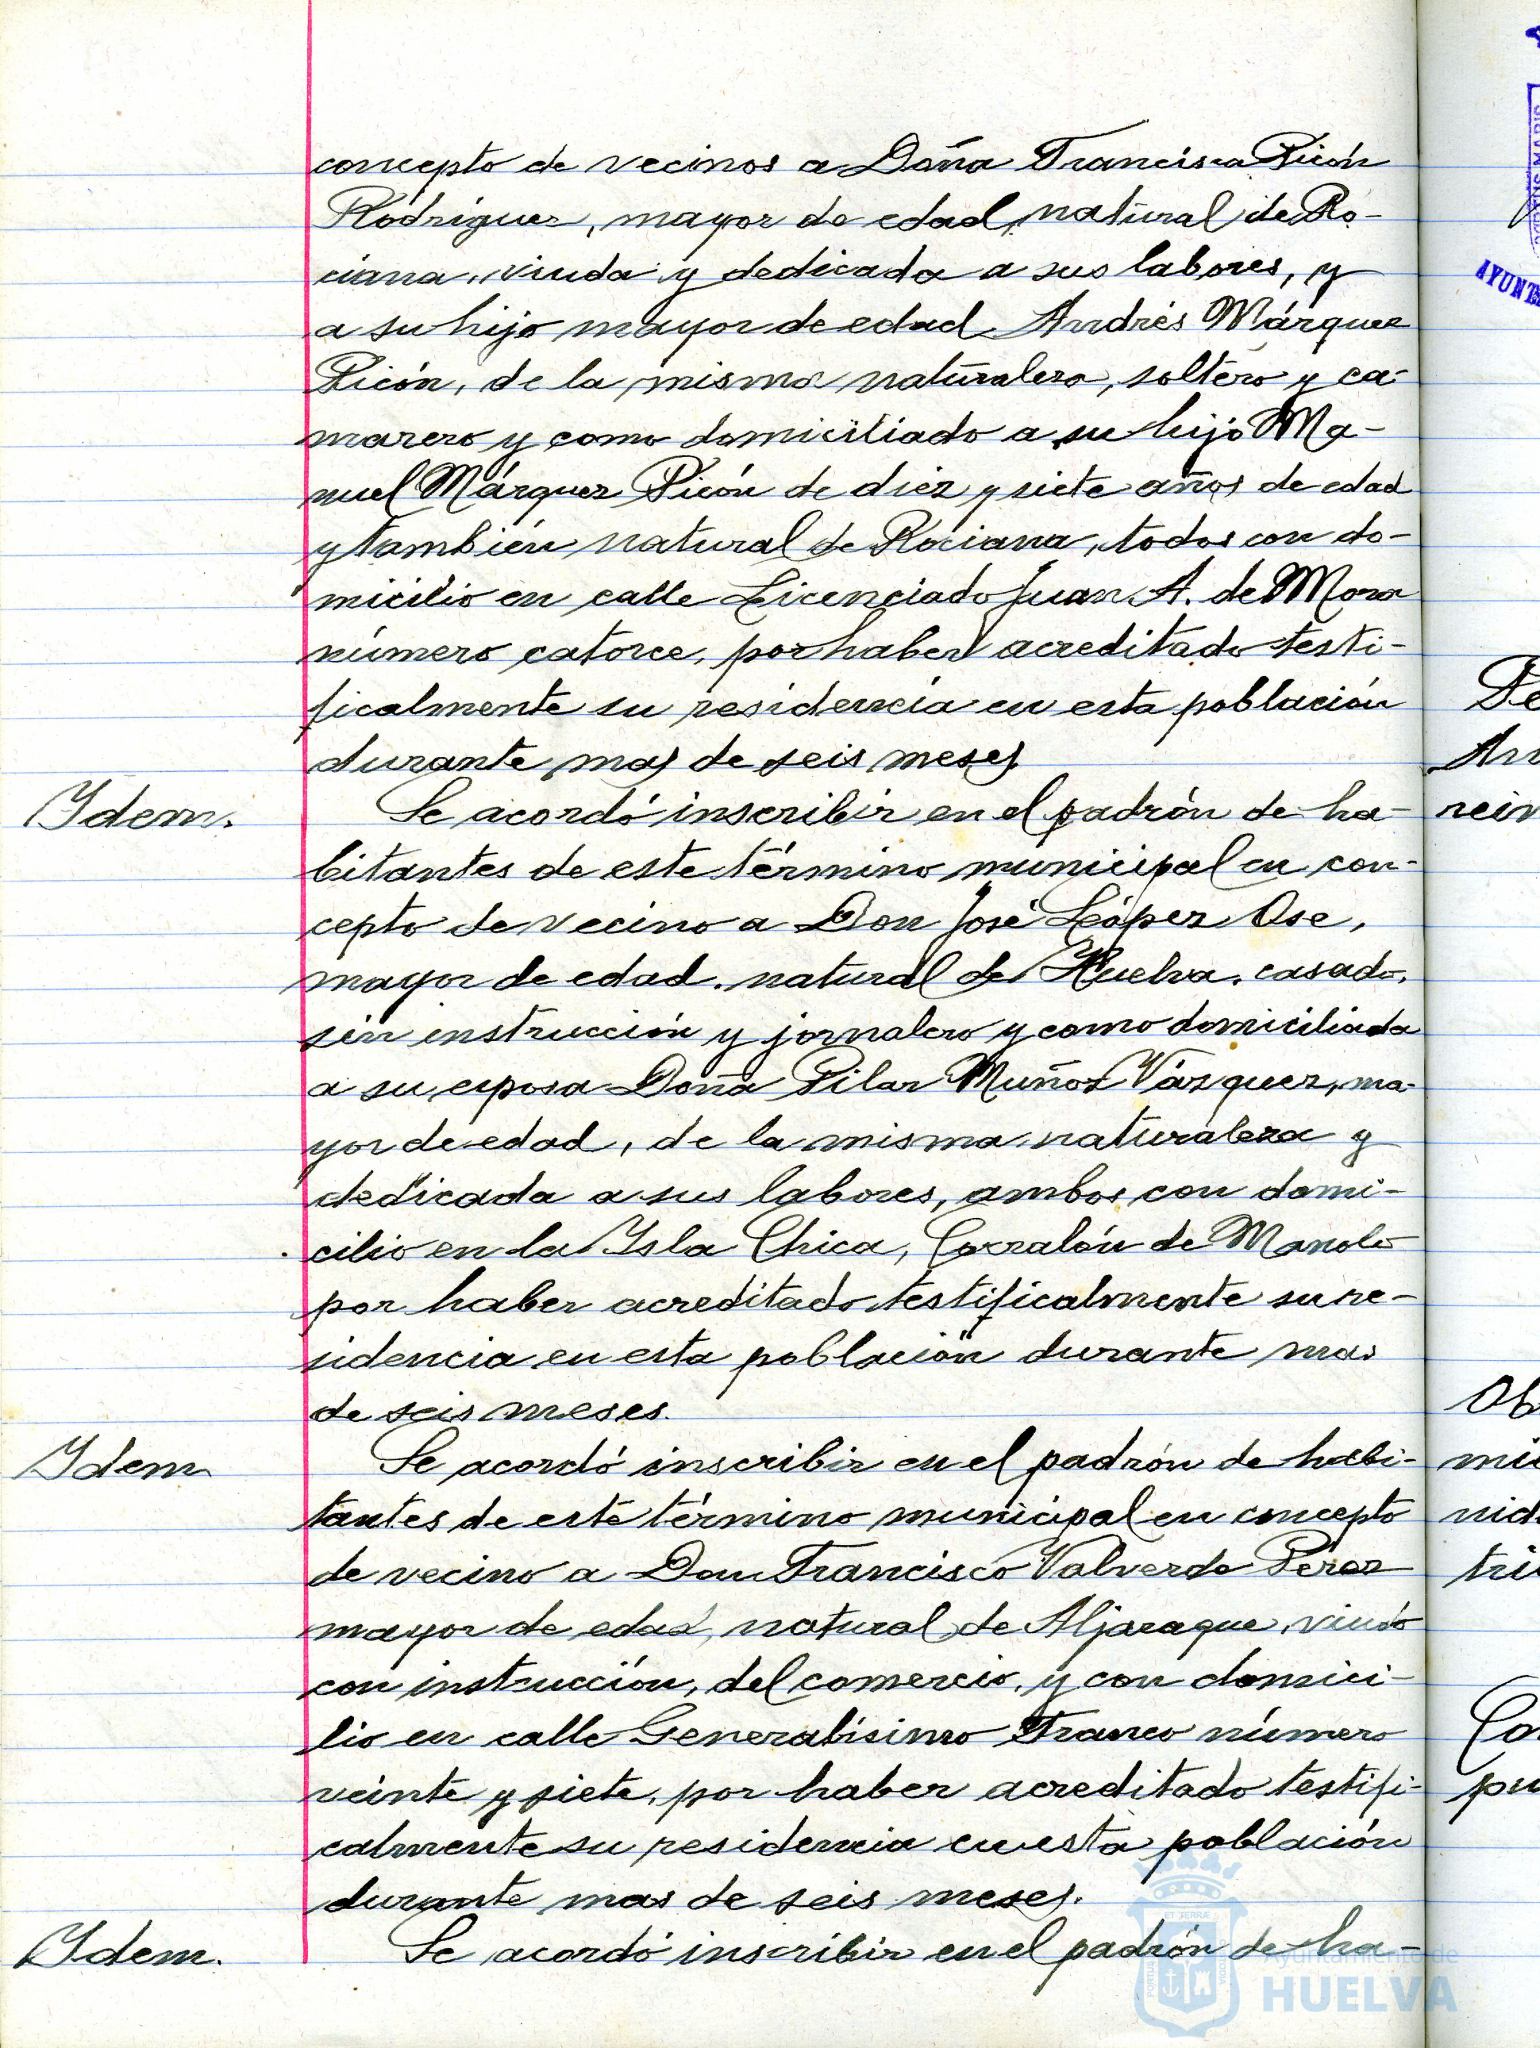 concepto de vecinos a Doña Francisca Picón
Rodríguez, mayor de edad, natural de Ro-
ciana, viuda y dedicada a sus labores, y
a su hijo mayor de edad Andrés Márquez
Picón, de la misma naturaleza, soltero y ca-
marero y como domiciliado a su hijo Ma-
nuel Márquez Picón de diez y siete años de edad
y también natural de Rociana, todos con do-
micilio en calle Licenciado Juan A. de Mora
número catorce, por haber acreditado testi-
ficalmente su residencia en esta población
durante mas de seis meses
Idem. Se acordó inscribir en el padrón de ha-
bitantes de este término municipal en con-
cepto de vecino a Don José López Ose,
mayor de edad, natural de Huelva, casado,
sin instrucción y jornalero y como domiciliada
a su esposa Doña Pilar Muñoz Vázquez, ma-
yor de edad, de la misma naturaleza y
dedicada a sus labores, ambos con domi-
cilio en la Isla Chica, Corralón de Manolo
por haber acreditado testificalmente su re-
sidencia en esta población durante mas
de seis meses.
Idem Se acordó inscribir en el padrón de habi-
tantes de este término municipal en concepto
de vecino a Don Francisco Valverde Pérez
mayor de edad, natural de Aljaraque, viudo
con instrucción, del comercio, y con domici-
lio en calle Generalísimo Franco número
veinte y siete, por haber acreditado testifi-
calmente su residencia en esta población
durante mas de seis meses.
Idem. Se acordó inscribir en el padrón de ha-
Ayuntamiento de
HUELVA